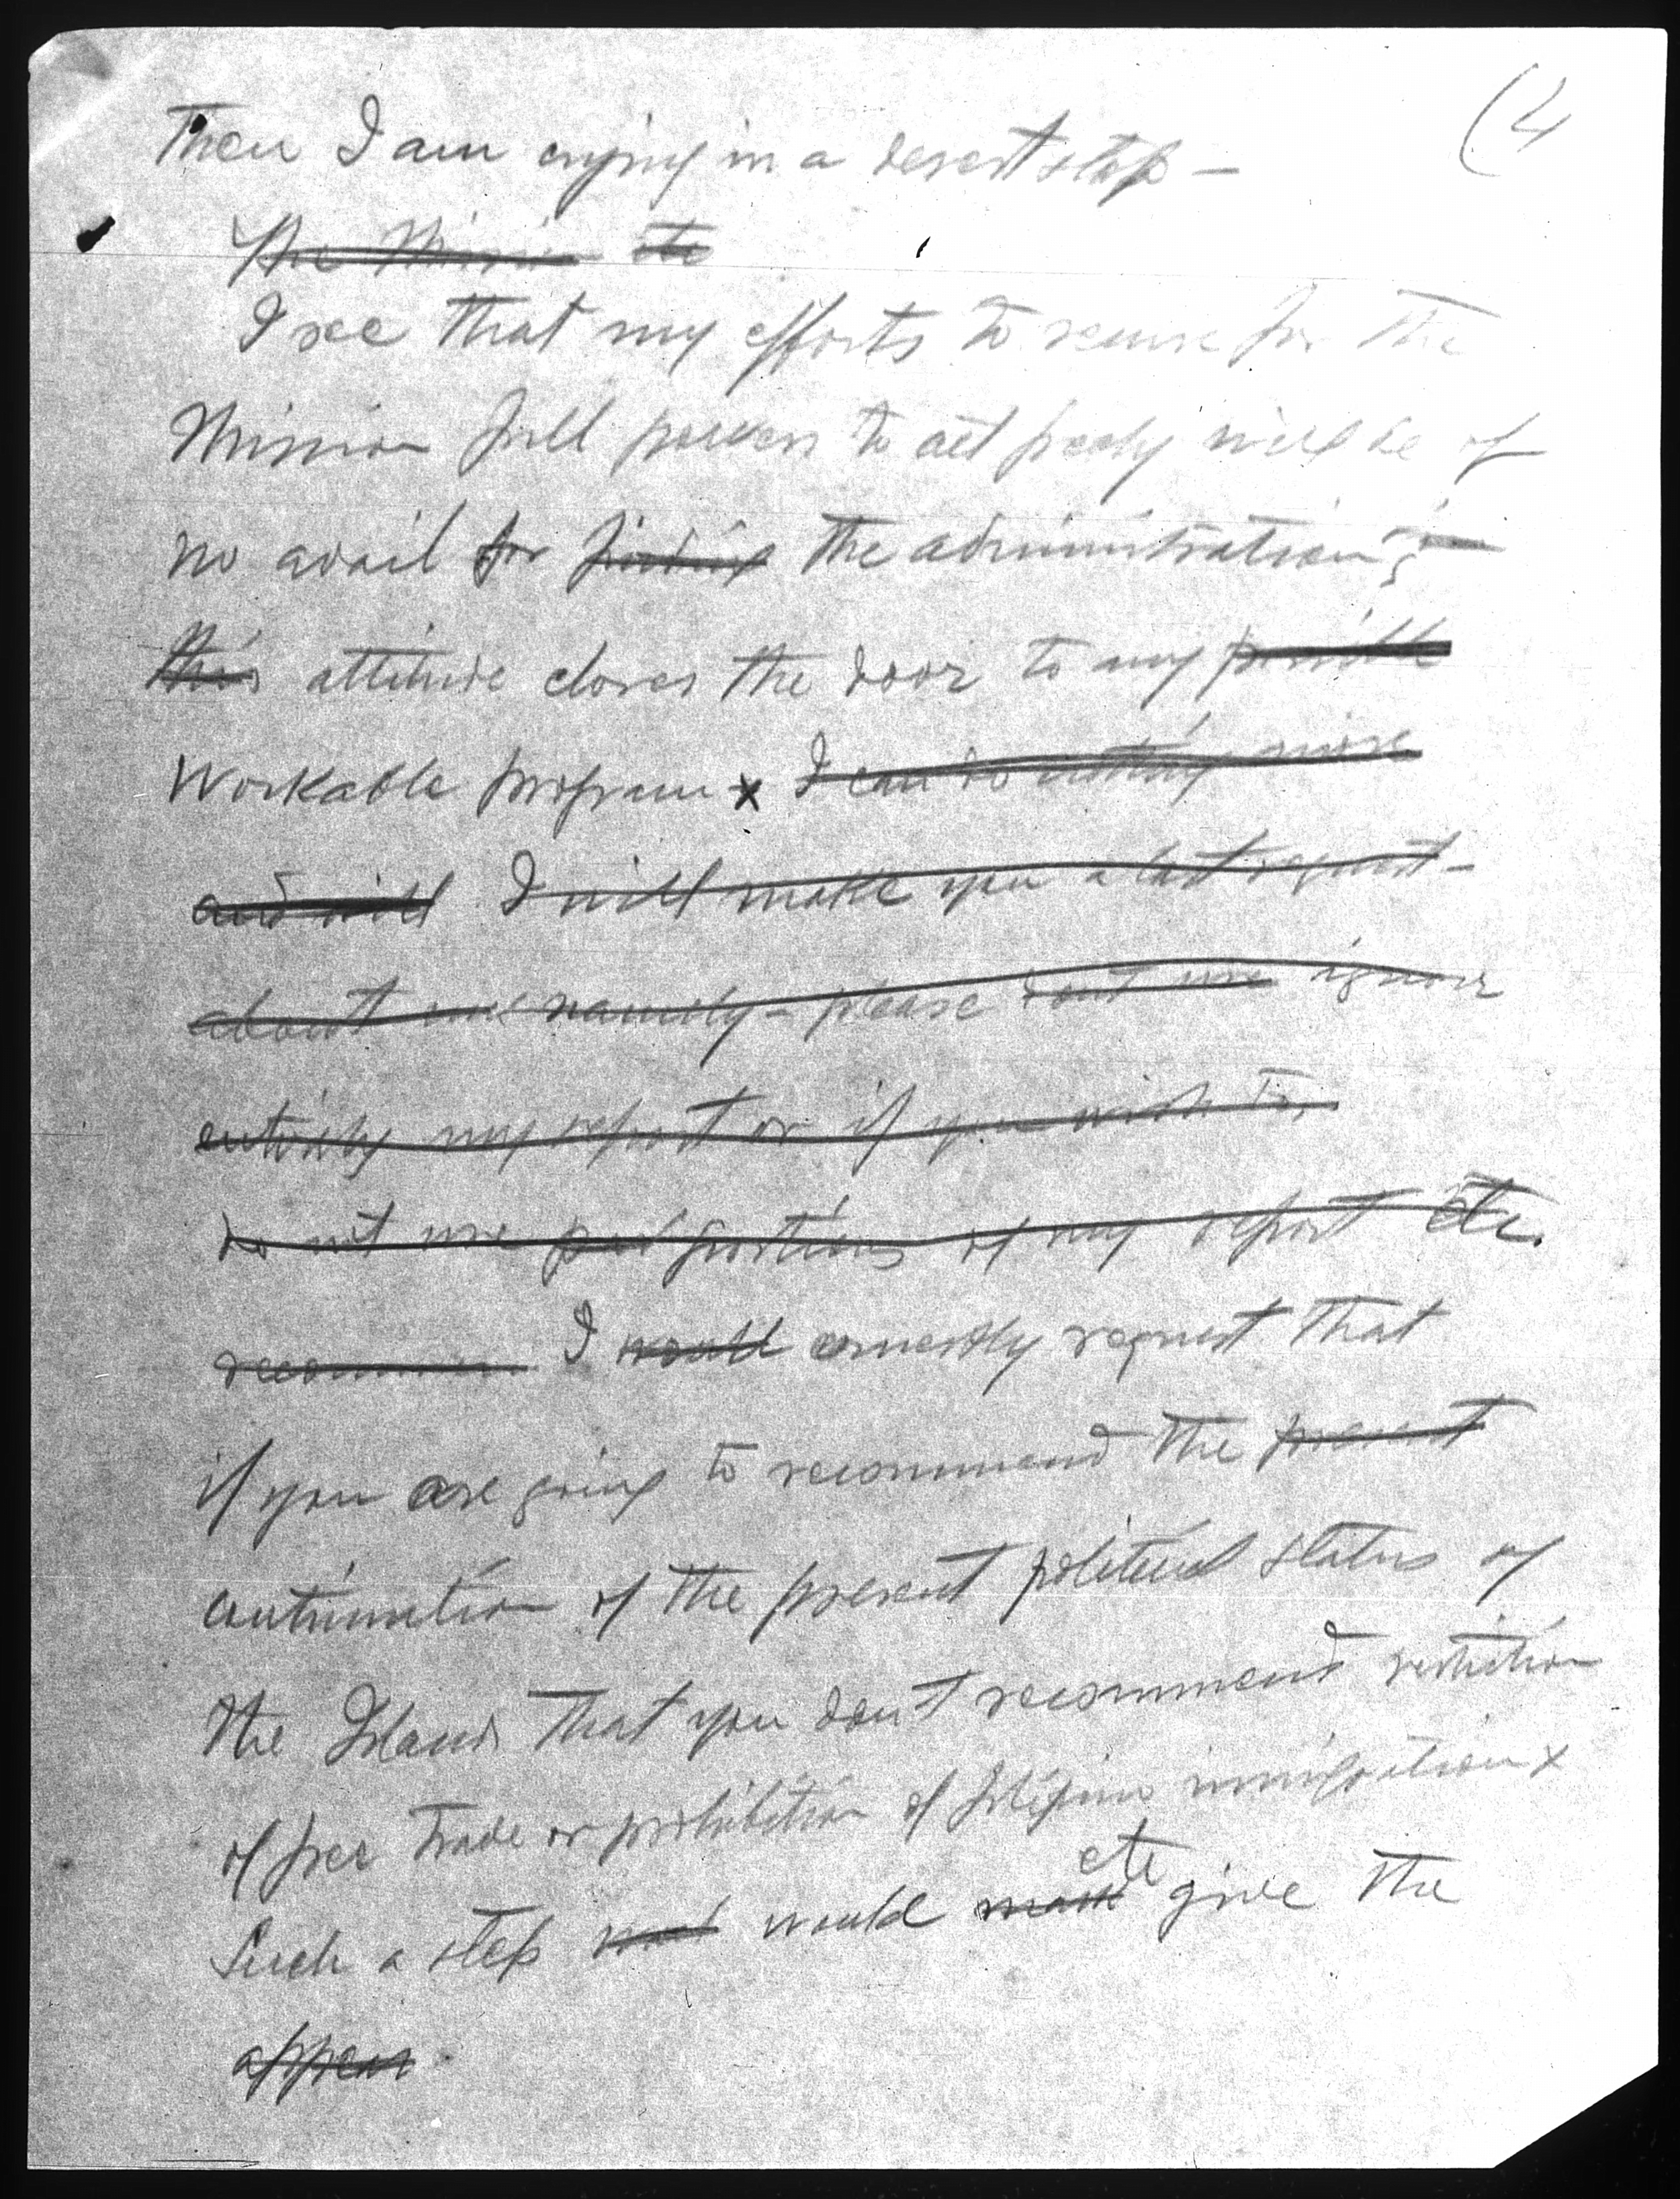 (4
Then I am crying in a desert stop –
The Mission etc
I see that my efforts to secure for the
Mission full powers to act freely will be of
no avail for the administration's
this attitude closes the door to any possible
workable program x I can do nothing more
and will I will make you a last request –
about namely – please dont use ignore
entirely my report or if you wish to,
do not use portions of my report etc.
recommen I would earnestly request that
if you are going to recommend the present
continuation of the present political status of
the Islands that you don't recommend restriction
of free trade or prohibition of Filipino immigration x
etc
Such a step would make give the
appear